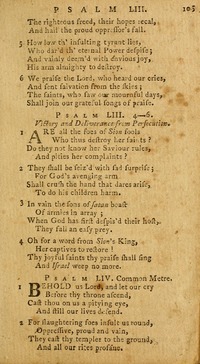 PSALM LIII. 105
The righteous freed, their hopes recal,
And hail the proud oppressor's fall.
5 How low th' insulting tyrant lies,
Who dar'd th' eternal Power despise;
And vainly deem'd with envious joy,
His arm almighty to destroy.
6 We praise the Lord, who heard our cries,
And sent salvation from the skies;
The saints, who saw our mournful days,
Shall join our grateful songs of praise.
PSALM LIII. 4—6.
Victory and Deliverance from Persecution.
1 ARE all the foes of Sion fools
Who thus destroy her saints?
Do they not know her Saviour rules,
And pities her complaints?
2 They shall be seiz'd with sad surprise;
For God's avenging arm
Shall crush the hand that dares arise,
To do his children harm.
3 In vain the sons of satan boast
Of armies in array;
When God has first despis'd their host,
They fall an easy prey.
4 Oh for a word from Sion's King,
Her captives to restore!
Thy joyful saints thy praise shall sing
And Israel weep no more.
PSALM LIV. Common Metre.
1 BEHOLD us Lord, and let our cry
Before thy throne ascend,
Cast thou on us a pitying eye,
And still our lives defend.
2 For slaughtering foes insult us round,
Oppressive, proud and vain,
They cast thy temples to the ground,
And all our rites profane.